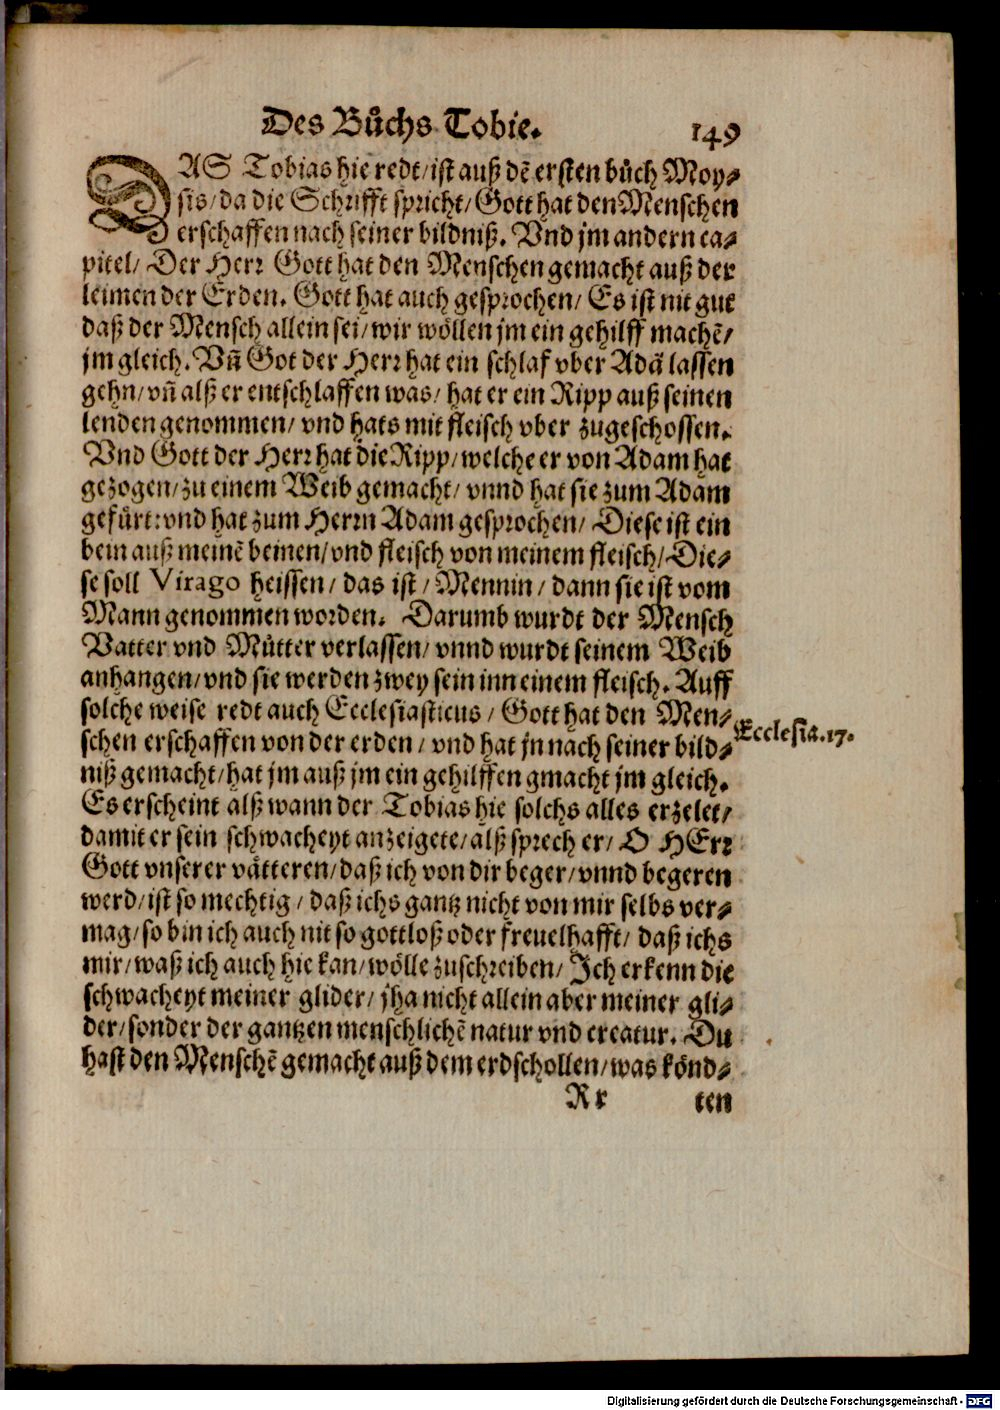 Des Bůchs Tobie.
149
DAS Tobias hie redt/ist auß dē ersten bůch Moy-
sis/da die Schrifft spricht/Gott hat den Menschen
erschaffen nach seiner bildniß. Vnd jm andern ca-
pitel/ Der Herr Gott hat den Menschen gemacht auß der
leimen der Erden. Gott hat auch gesprochen/ Es ist nit gut
daß der Mensch allein sei/wir wöllen jm ein gehilff machē/
jm gleich. Vñ Got der Herr hat ein schlaf vber Adā lassen
gehn/vñ alß er entschlaffen was/ hat er ein Ripp auß seinen
lenden genommen/ vnd hats mit fleisch vber zugeschossen.
Vnd Gott der Herr hat die Ripp/welche er von Adam hat
gezogen/zu einem Weib gemacht/ vnnd hat sie zum Adam
gefürt:vnd hat zum Herrn Adam gesprochen/ Diese ist ein
bein auß meinē beinen/vnd fleisch von meinem fleisch/Die-
se soll Virago heissen/ das ist/ Mennin/ dann sie ist vom
Mann genommen worden. Darumb wurdt der Mensch
Vatter vnd Můtter verlassen/ vnnd wurdt seinem Weib
anhangen/vnd sie werden zwey sein inn einem fleisch. Auff
solche weise redt auch Ecclesiasticus/ Gott hat den Men-
Ecclesia.17.
schen erschaffen von der erden/ vnd hat jn nach seiner bild-
niß gemacht/hat jm auß jm ein gehilffen gmacht jm gleich.
Es erscheint alß wann der Tobias hie solchs alles erzelet/
damit er sein schwacheyt anzeigete/alß sprech er/ O HErr
Gott vnserer vätteren/daß ich von dir beger/vnnd begeren
werd/ist so mechtig/ daß ichs gantz nicht von mir selbs ver-
mag/so bin ich auch nit so gottloß oder freuelhafft/ daß ichs
mir/waß ich auch hie kan/wölle zuschreiben/ Ich erkenn die
schwacheyt meiner glider/ jha nicht allein aber meiner gli-
der/sonder der gantzen menschlichē natur vnd creatur. Du
hast den Menschē gemacht auß dem erdschollen/was könd-
Rr
ten
Digitalisierung gefördert durch die Deutsche Forschungsgemeinschaft - DFG